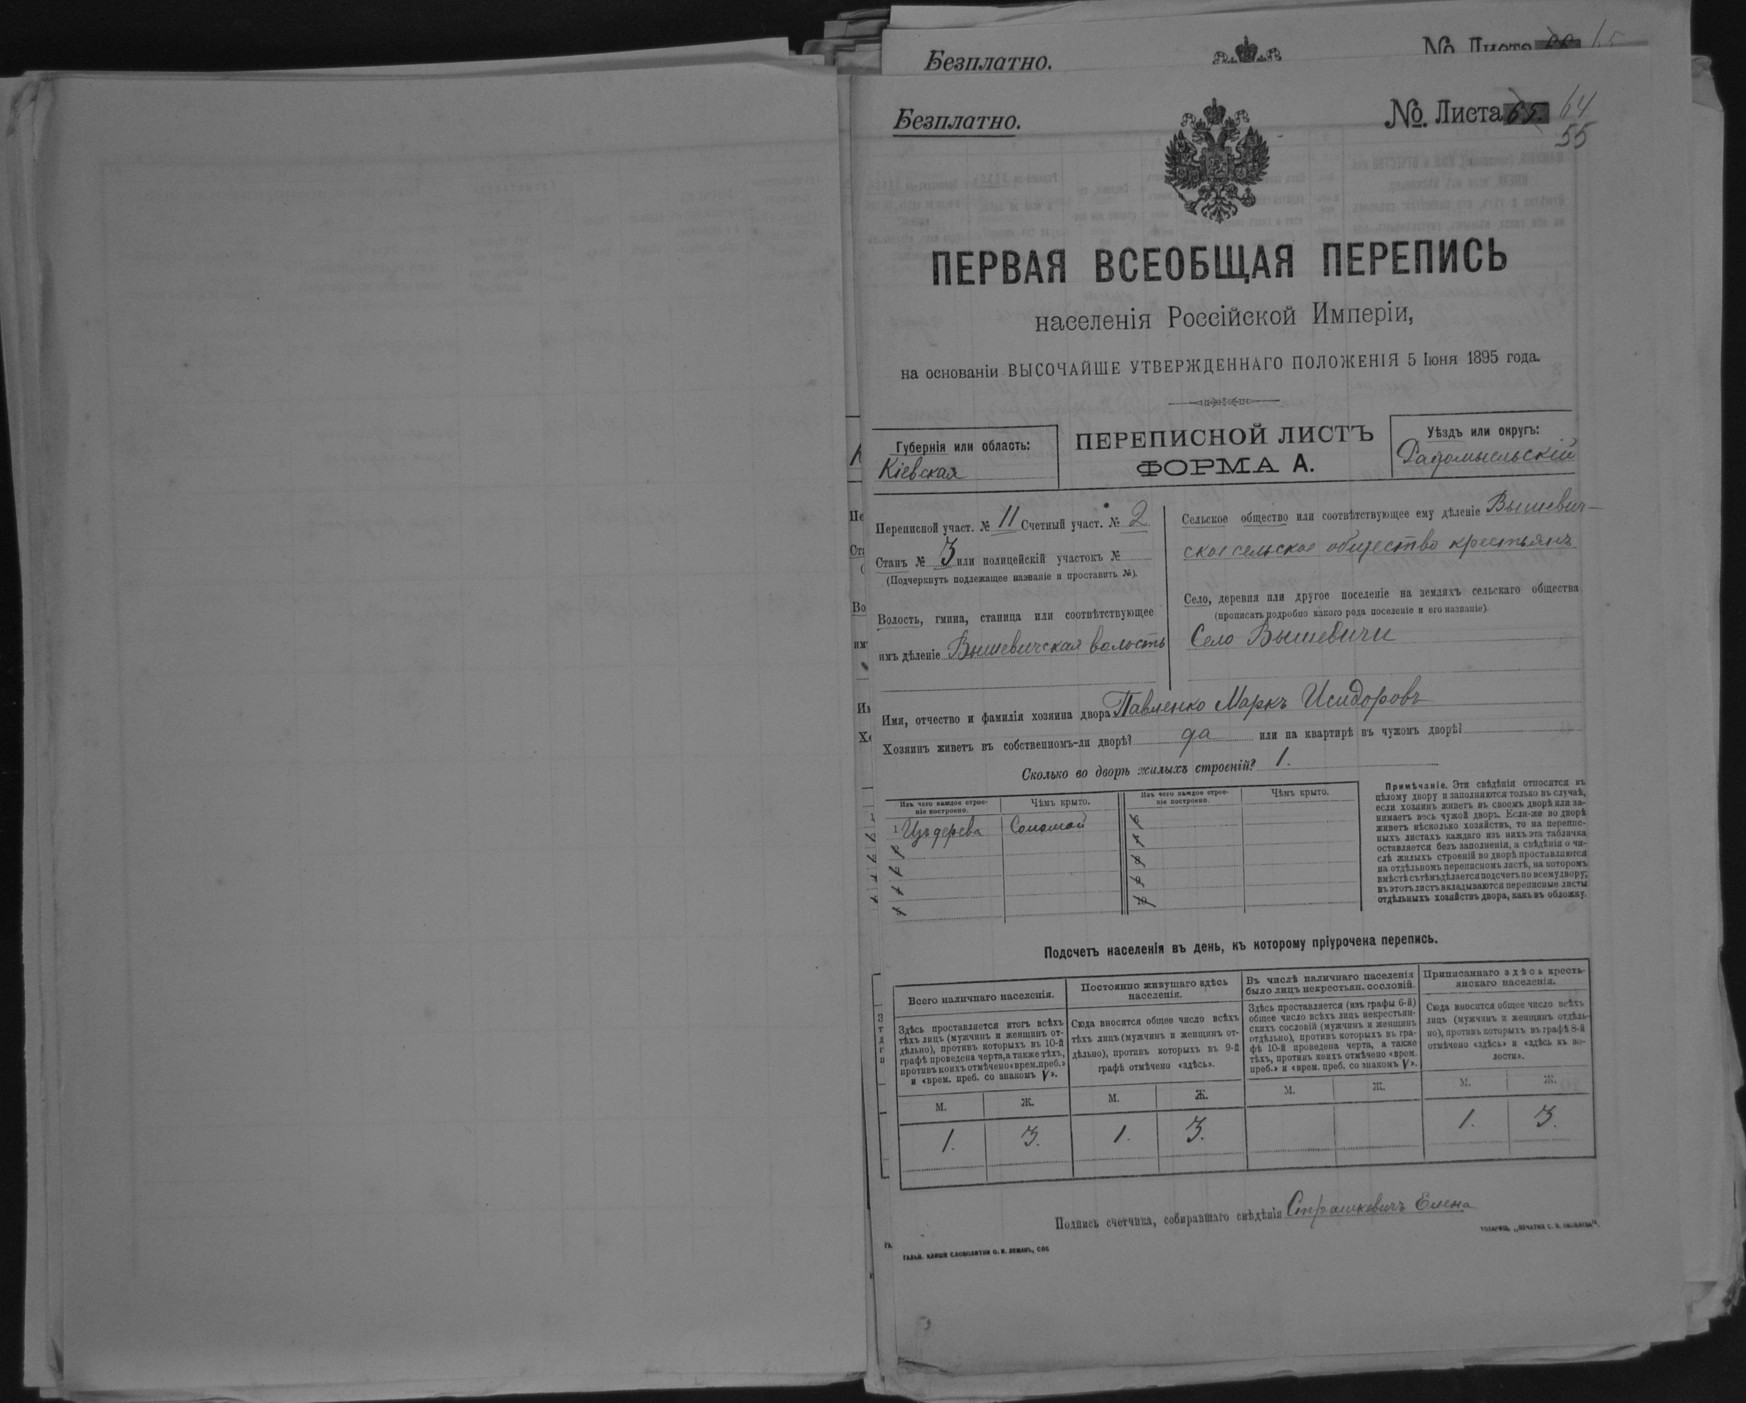 Безплатно.
No. Листа
Безплатно.
No. Листа 65. 64
55
ПЕРВАЯ ВСЕОБЩАЯ ПЕРЕПИСЬ
населенія Россійской Имперіи,
на основаніи ВЫСОЧАЙШЕ УТВЕРЖДЕННАГО ПОЛОЖЕНІЯ 5 Іюня 1895 года.
Губернія или область:
Кіевская
ПЕРЕПИСНОЙ ЛИСТЪ
ФОРМА А.
Уѣздъ или округъ:
Радомысльскій
Переписной участ. № 11 Счетный участ. № 2
Станъ № 3 или полицейскій участокъ №
(Подчеркнуть подлежащее названіе и проставить №).
Волость, гмина, станица или соотвѣтствующее
имъ дѣленіе Вышевичская волость
Сельское общество или соотвѣтствующее ему дѣленіе Вышевич-
ское сельское общество крестьянъ
Село, деревня или другое поселеніе на земляхъ сельскаго общества
(прописать подробно какого рода поселеніе и его названіе)
Село Вышевичи
Имя, отчество и фамилія хозяина двора Павленко Маркъ Исидоровъ
Хозяинъ живетъ въ собственномъ-ли дворѣ? да или на квартирѣ въ чужомъ дворѣ?
Сколько во дворѣ жилыхъ строеній? 1.
Изъ чего каждое строе-
ніе построено.
Чѣмъ крыто.
Изъ чего каждое строе-
ніе построено.
Чѣмъ крыто.
1 Изъ дерева Соломой
Примѣчаніе. Эти свѣдѣнія относятся къ
цѣлому двору и заполняются только въ случаѣ,
если хозяинъ живетъ въ своемъ дворѣ или за-
нимаетъ весь чужой дворъ. Если-же во дворѣ
живетъ нѣсколько хозяйствъ, то на перепис-
ныхъ листахъ каждаго изъ нихъ эта табличка
оставляется безъ заполненія, а свѣдѣнія о чи-
слѣ жилыхъ строеній во дворѣ проставляются
на отдѣльномъ переписномъ листѣ, на которомъ
вмѣстѣ съ тѣмъ дѣлается подсчетъ по всему двору;
въ этотъ листъ вкладываются переписные листы
отдѣльныхъ хозяйствъ двора, какъ въ обложку.
Подсчетъ населенія въ день, къ которому пріурочена перепись.
Всего наличнаго населенія.
Здѣсь проставляется итогъ всѣхъ
тѣхъ лицъ (мужчинъ и женщинъ от-
дѣльно), противъ которыхъ въ 10-й
графѣ проведена черта, а также тѣхъ,
противъ коихъ отмѣчено «врем. преб.»
и «врем. преб. со знакомъ V».
Постоянно живущаго здѣсь
населенія.
Сюда вносится общее число всѣхъ
тѣхъ лицъ (мужчинъ и женщинъ от-
дѣльно), противъ которыхъ въ 9-й
графѣ отмѣчено «здѣсь».
Въ числѣ наличнаго населенія
было лицъ некрестьян. сословій.
Здѣсь проставляется (изъ графы 6-й)
общее число всѣхъ лицъ некрестьян-
скихъ сословій (мужчинъ и женщинъ
отдѣльно), противъ которыхъ въ гра-
фѣ 10-й проведена черта, а также
тѣхъ, противъ коихъ отмѣчено «врем.
преб.» и «врем. преб. со знакомъ V».
Приписаннаго здѣсь кресть-
янскаго населенія.
Сюда вносится общее число всѣхъ
лицъ (мужчинъ и женщинъ отдѣль-
но), противъ которыхъ въ графѣ 8-й
отмѣчено «здѣсь» и «здѣсь въ во-
лости».
М. Ж. М. Ж. М. Ж. М. Ж.
1. 3. 1. 3. 1. 3.
Подпись счетчика, собиравшаго свѣдѣнія Страшкевичъ Елена